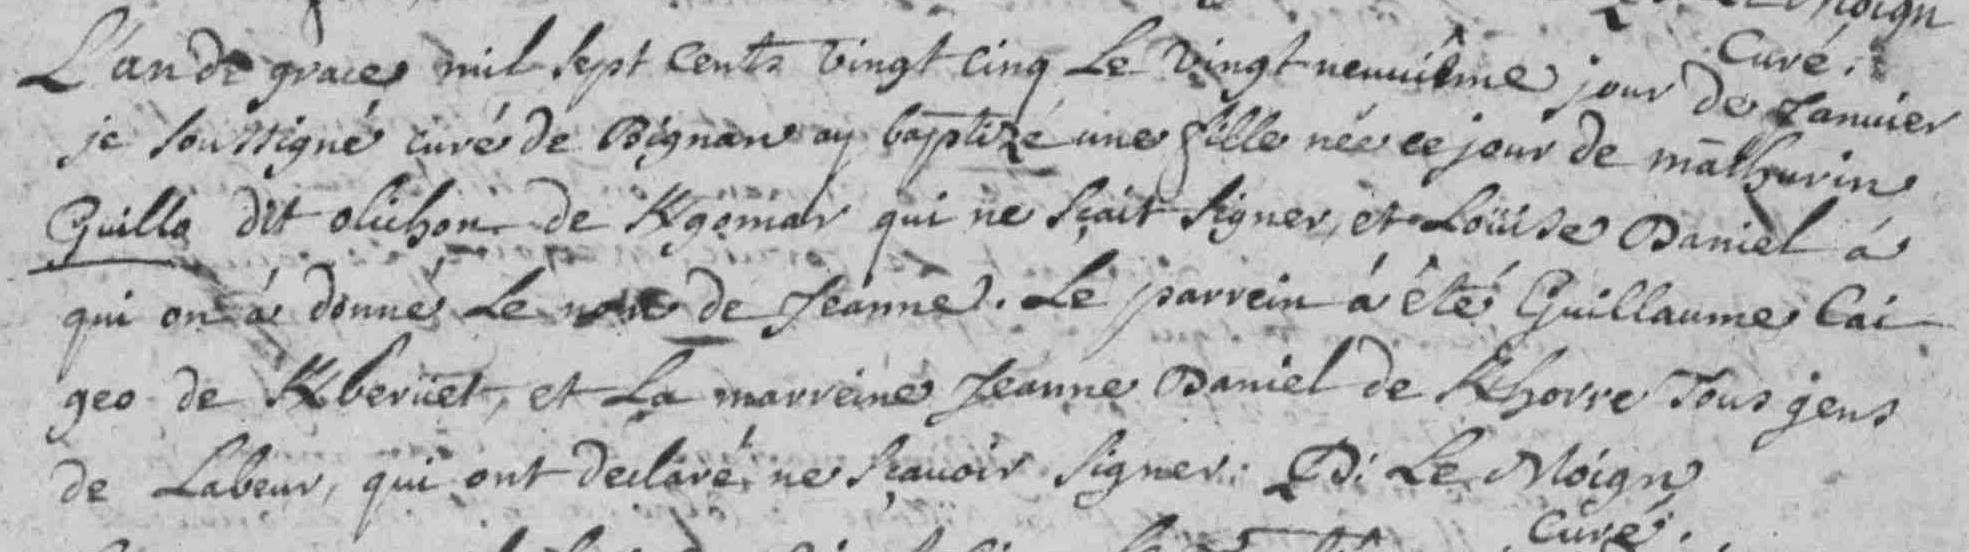 Le Moign
Curé.
L'an de grace mil sept cents vingt cinq Le vingt neuuiéme jour de Januier
je soussigné curé de Bignan ay baptizé une fille née ce jour de mathurin
Guillo dit olichon de Kgomar qui ne sçait signer, et Loüise Daniel á
qui on á donné Le nom de Jeanne. Le parrein á êté Guillaume Cai
geo de Kberüet, et La marreine Jeanne Daniel de Khorre Tous gens
de Labeur, qui ont declaré ne sçauoir signer. Le Moign
Curé.